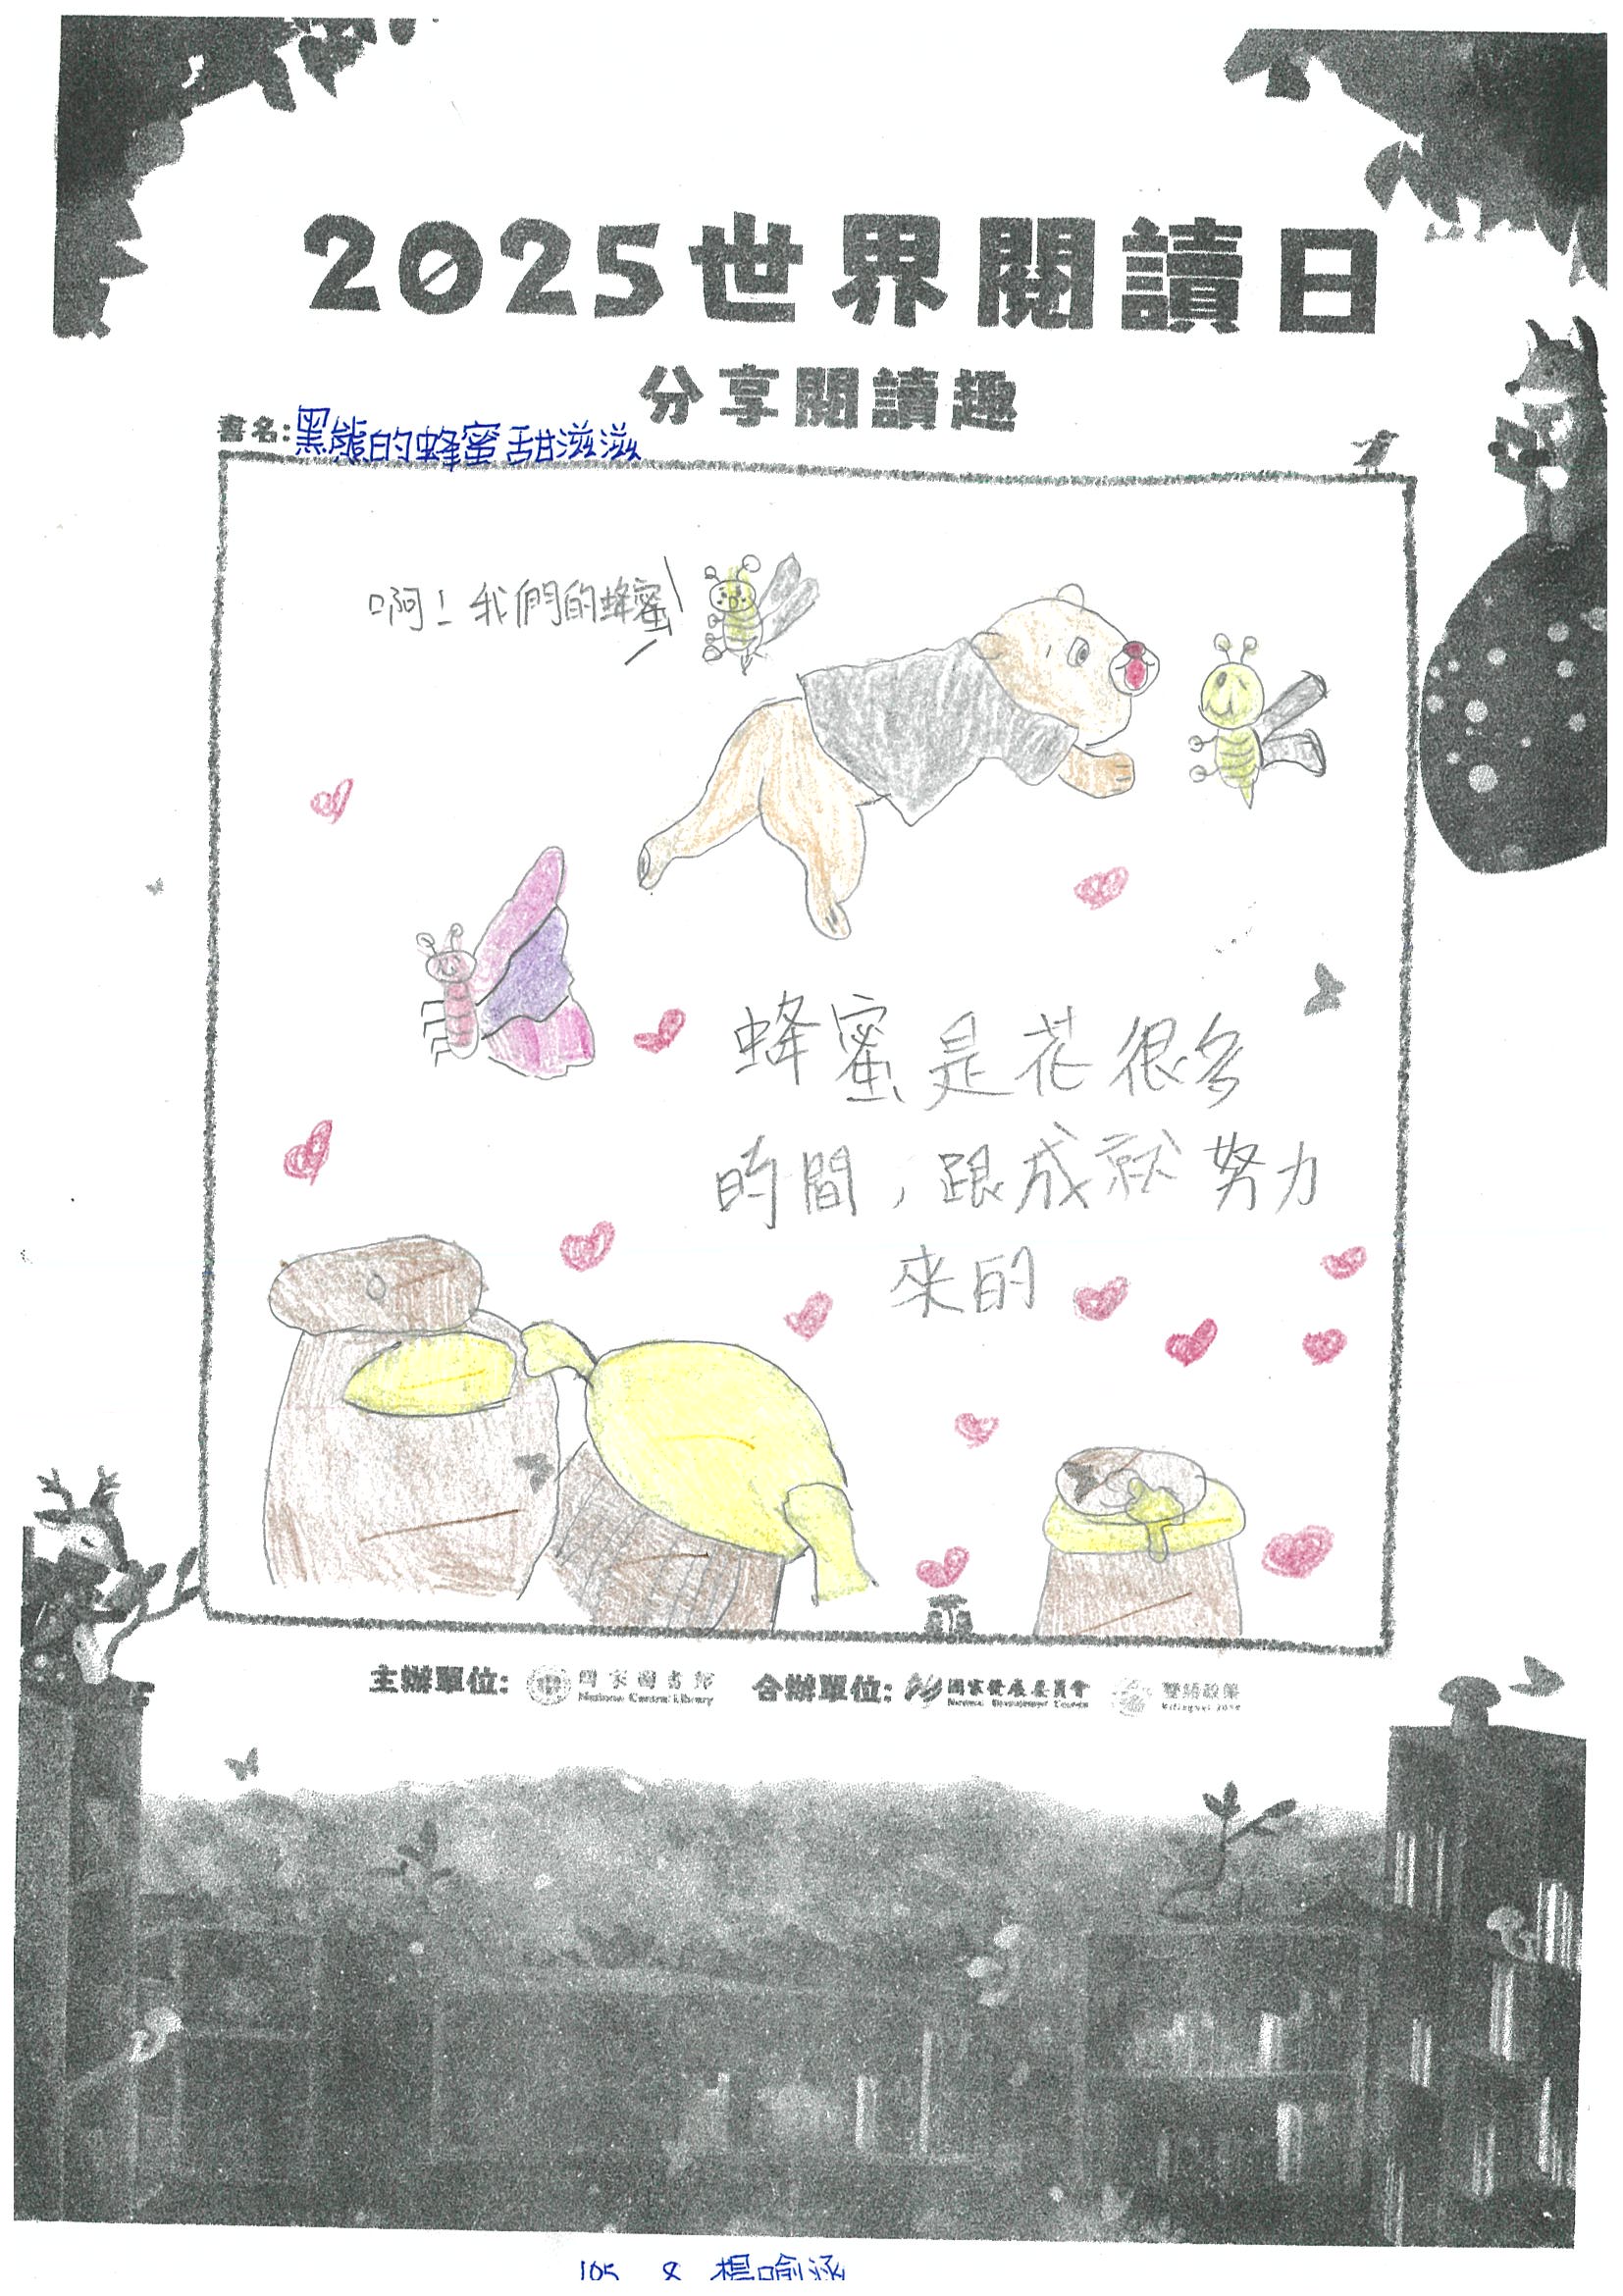 2025世界閱讀日
分享閱讀趣
書名:黑熊的蜂蜜甜滋滋
啊!我們的蜂蜜
蜂蜜是花很多
時間,跟成就努力
來的
主辦單位: 國家圖書館 National Central Library 合辦單位: 國家發展委員會 National Development Council 雙語政策 Bilingual 2030
105 8 楊喻涵